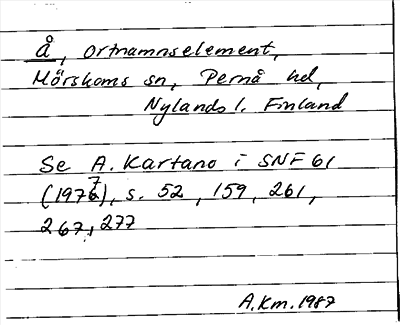 å, ortnamnselement,
Mörskoms sn, Pernå hd,
Nylands l. Finland
Se A. Kartano i SNF 61
(1977), s. 52, 159, 261,
267, 277
A.Km. 1987